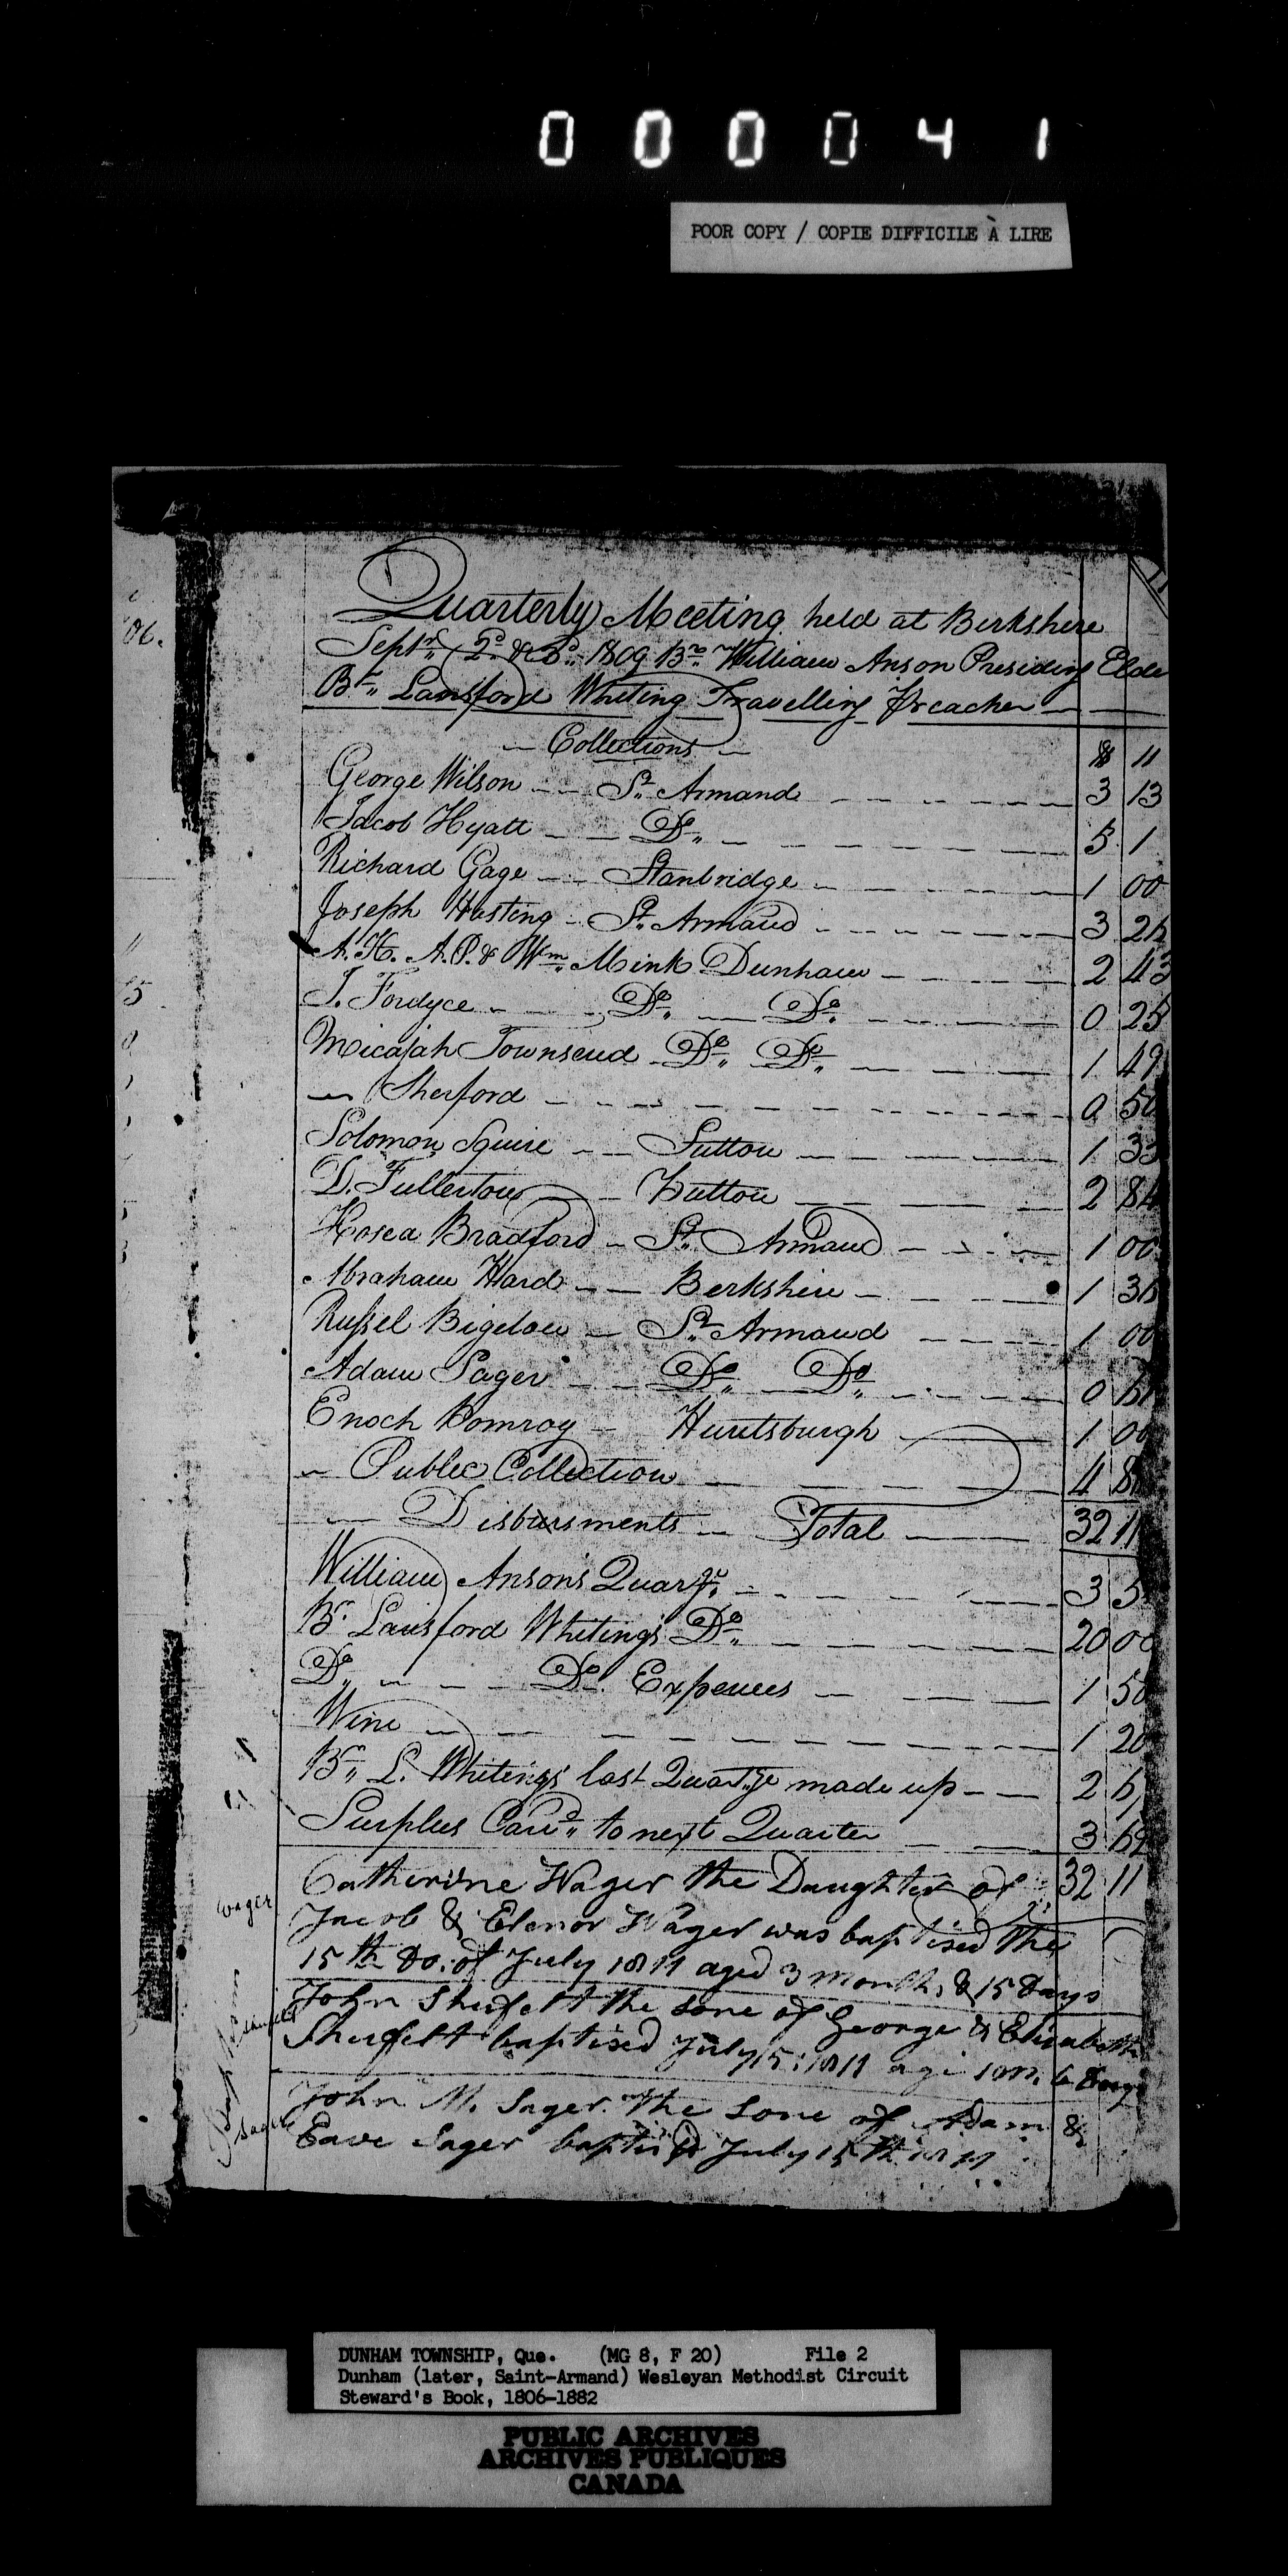 0 0 0 0 4 1
POOR COPY / COPIE DIFFICILE À LIRE
11
Quarterly Meeting held at Berkshire
Septr. 2d & 3d. 1809 Br. William Anson Presiding Elde
Br. Lansford Whiting Travelling Preacher
06.
Collections $ 11
George Wilson St. Armand 3 13
Jacob Hyatt Do. 5 1
Richard Gage Stanbridge 1 00
Joseph Hasting St. Armand 3 26
A. H. A. P. & Wm. Mink Dunham 2 43
J. Fordyce Do. Do. 0 25
Micajah Townsend Do. Do. 1 49
Sherford 0 50
Solomon Squire Sutton 1 33
D. Fullerton Sutton 2 84
Hosea Bradford St. Armand 1 00
Abraham Hard Berkshire 1 36
Russel Bigelow St. Armand 1 00
Adam Sager Do. Do. 0
Enoch Pomroy Huntsburgh 1 00
Public Collection 4 8
Disbursments Total 32 11
William Anson's Quarge. 3 5
Br. Lansford Whiting's Do. 20 00
Do. Do. Expences 1 50
Wine 1 20
Br. L. Whiting's last Quarge made up 2 6
Surplus Card. to next Quarter 3 69
32 11
Wager
Catherine Wager the Daughter of
Jacob & Elenor Wager was baptised the
15th do. of July 1811 aged 3 Months & 15 days
John Shefelt the Sone of George & Elisabeth
Shefelt baptised July 15: 1811 age 1 m. 6 days
Sager
John M. Sager the Sone of Adam &
Eave Sager baptised July 15th 1811
DUNHAM TOWNSHIP, Que. (MG 8, F 20) File 2
Dunham (later, Saint-Armand) Wesleyan Methodist Circuit
Steward's Book, 1806-1882
PUBLIC ARCHIVES
ARCHIVES PUBLIQUES
CANADA